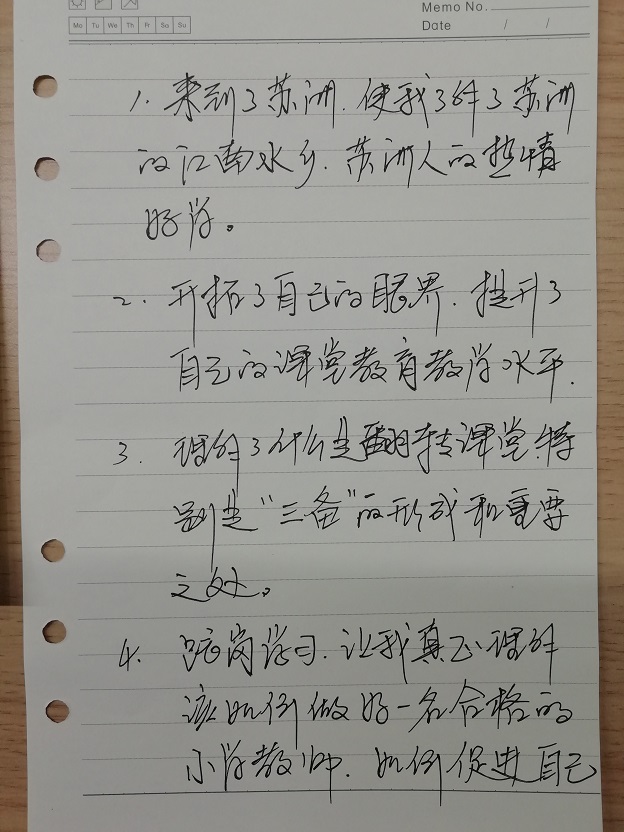 Memo No.
Mo Tu We Th Fr Sa Su
Date / /
1. 来到了苏州,使我了解了苏州
的江南水乡,苏州人的热情
好学。
2. 开拓了自己的眼界,提升了
自己的课堂教育教学水平.
3. 理解了什么是翻转课堂,特
别是“三备”的形成和重要
之处。
4. 跟岗学习,让我真正理解
该如何做好一名合格的
小学教师,如何促进自己